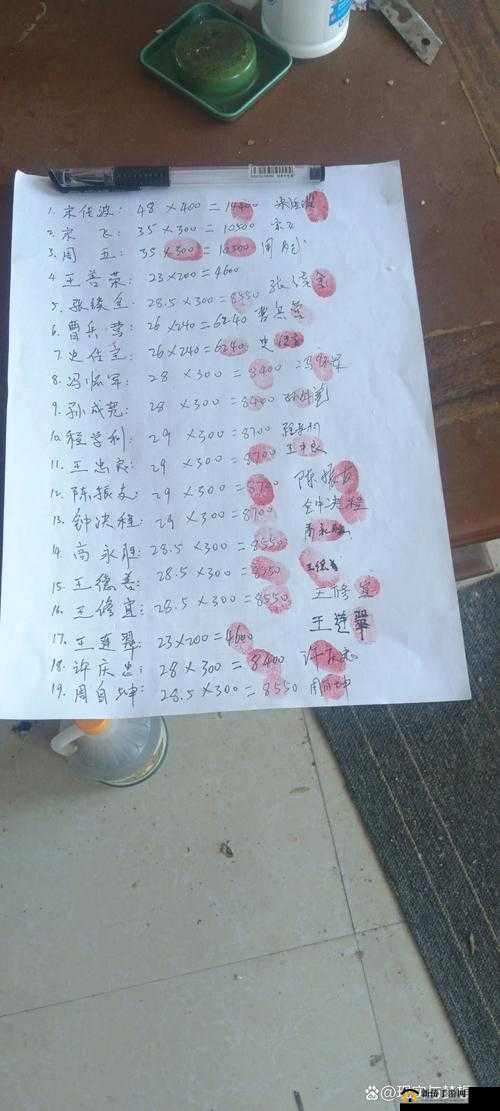 1. 宋佳波: 48×400=14400
2. 宋飞: 35×300=10500 宋飞
3. 周五: 35×300=10500
4. 王善荣: 23×200=4600
5. 张绪金: 28.5×300=8550
6. 曹兵营: 26×240=6240 曹兵营
7. 史佳宝: 26×240=6240 史佳宝
8. 冯怀军: 28×300=8400
9. 孙成宽: 28×300=8400
10. 程学利: 29×300=8700 程学利
11. 王忠良: 29×300=8700 王中良
12. 陈振友: 29×300=8700 陈振友
13. 钟决程: 29×300=8700 钟决程
14. 高永胜: 28.5×300=8550 高永胜
15. 王德善: 28.5×300=8550 王德善
16. 王修宜: 28.5×300=8550 王修宜
17. 王莲翠: 23×200=4600 王莲翠
18. 许庆忠: 28×300=8400 许庆忠
19. 周自坤: 28.5×300=8550 周自坤